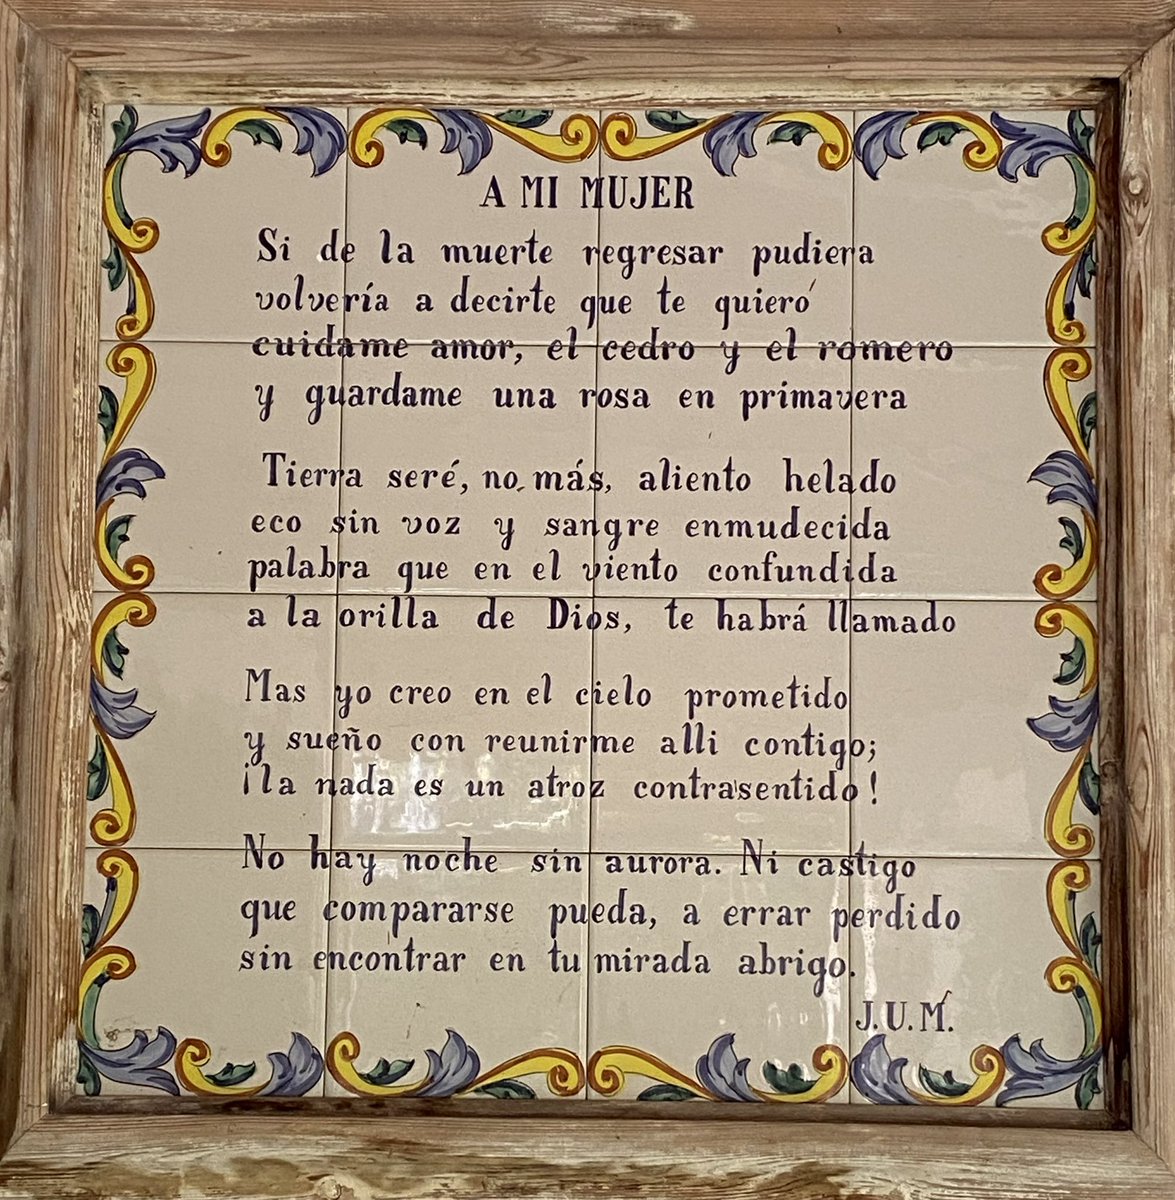 A MI MUJER
Si de la muerte regresar pudiera
volvería a decirte que te quiero
cuidame amor, el cedro y el romero
y guardame una rosa en primavera
Tierra seré, no más, aliento helado
eco sin voz y sangre enmudecida
palabra que en el viento confundida
a la orilla de Dios, te habrá llamado
Mas yo creo en el cielo prometido
y sueño con reunirme alli contigo;
¡la nada es un atroz contrasentido!
No hay noche sin aurora. Ni castigo
que compararse pueda, a errar perdido
sin encontrar en tu mirada abrigo.
J.U.M.